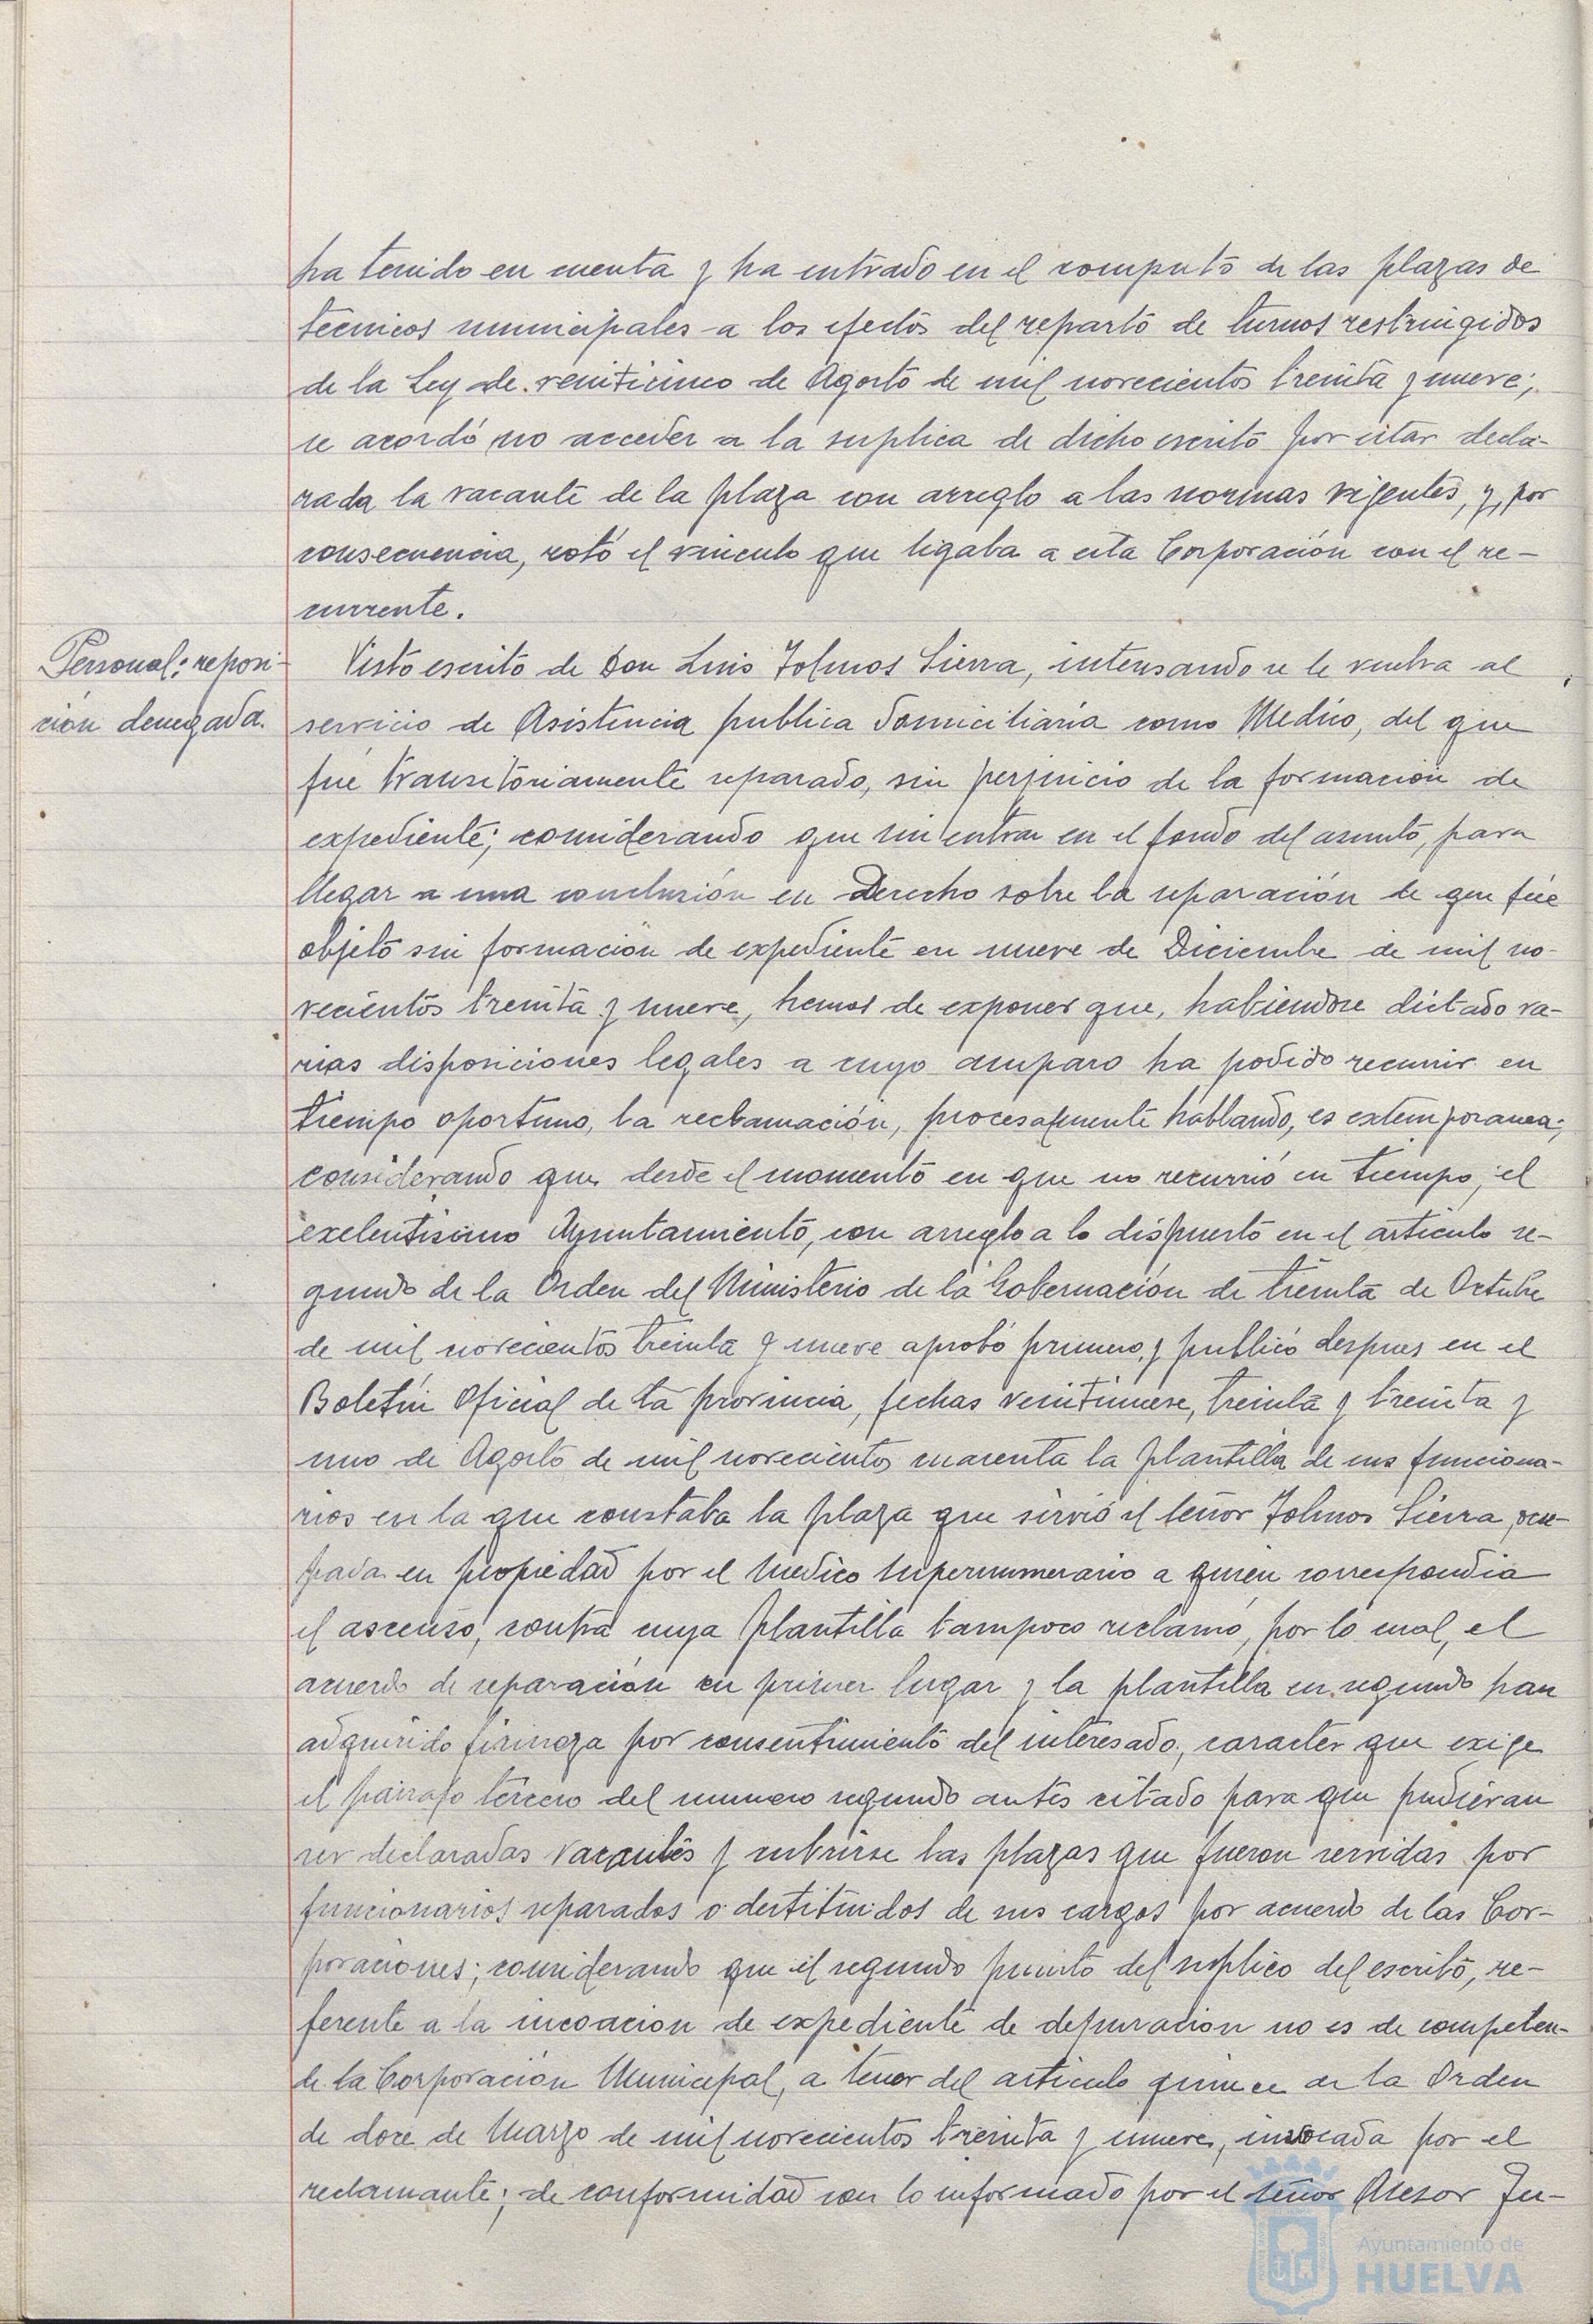 ha tenido en cuenta y ha entrado en el computo de las plazas de
técnicos municipales a los efectos del reparto de turnos restringidos
de la Ley de veinticinco de Agosto de mil novecientos treinta y nueve;
se acordó no acceder a la suplica de dicho escrito por estar decla-
rada la vacante de la plaza con arreglo a las normas vigentes, y, por
consecuencia, roto el vinculo que ligaba a esta Corporación con el re-
currente.
Personal: reposi-
ción denegada.
Visto escrito de Don Luis Tolmos Sierra, intensando se le vuelva al
servicio de Asistencia publica domiciliaria como Medico, del que
fué transitoriamente separado, sin perjuicio de la formación de
expediente; considerando que sin entrar en el fondo del asunto, para
llegar a una conclusión en Derecho sobre la separación de que fué
objeto sin formación de expediente en nueve de Diciembre de mil no-
vecientos treinta y nueve, hemos de exponer que, habiendose dictado va-
rias disposiciones legales a cuyo amparo ha podido recurrir en
tiempo oportuno, la reclamación, procesalmente hablando, es extemporanea;
considerando que desde el momento en que no recurrió en tiempo, el
exelentisimo Ayuntamiento, con arreglo a lo dispuesto en el articulo se-
gundo de la Orden del Ministerio de la Gobernación de treinta de Octubre
de mil novecientos treinta y nueve aprobó primero y publicó despues en el
Boletín Oficial de la provincia, fechas veintinueve, treinta y treinta y
uno de Agosto de mil novecientos cuarenta la plantilla de sus funciona-
rios en la que constaba la plaza que sirvió el señor Tolmos Sierra, ocu-
pada en propiedad por el Medico supernumerario a quien correspondia
el ascenso, contra cuya plantilla tampoco reclamó, por lo cual, el
acuerdo de separación en primer lugar y la plantilla en segundo han
adquirido firmeza por consentimiento del interesado, caracter que exige
el parrafo tercero del numero segundo antes citado para que pudieran
ser declaradas vacantes y cubrirse las plazas que fueron servidas por
funcionarios separados o destituidos de sus cargos por acuerdo de las Cor-
poraciones; considerando que el segundo punto del suplico del escrito, re-
ferente a la incoacion de expediente de depuracion no es de competen-
de la Corporación Municipal, a tenor del articulo quince de la Orden
de doce de Marzo de mil novecientos treinta y nueve, invocada por el
reclamante; de conformidad con lo informado por el señor Asesor Ju-
Ayuntamiento de
HUELVA